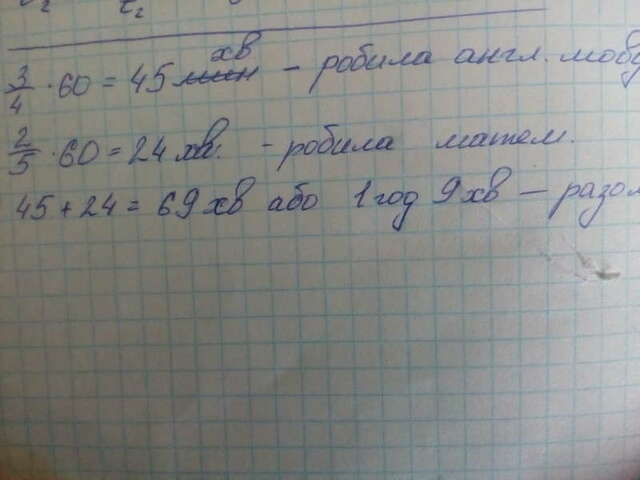 3/4 · 60 = 45 хв - робила англ. мову
2/5 · 60 = 24 хв. - робила матем.
45 + 24 = 69 хв або 1 год 9 хв — разом